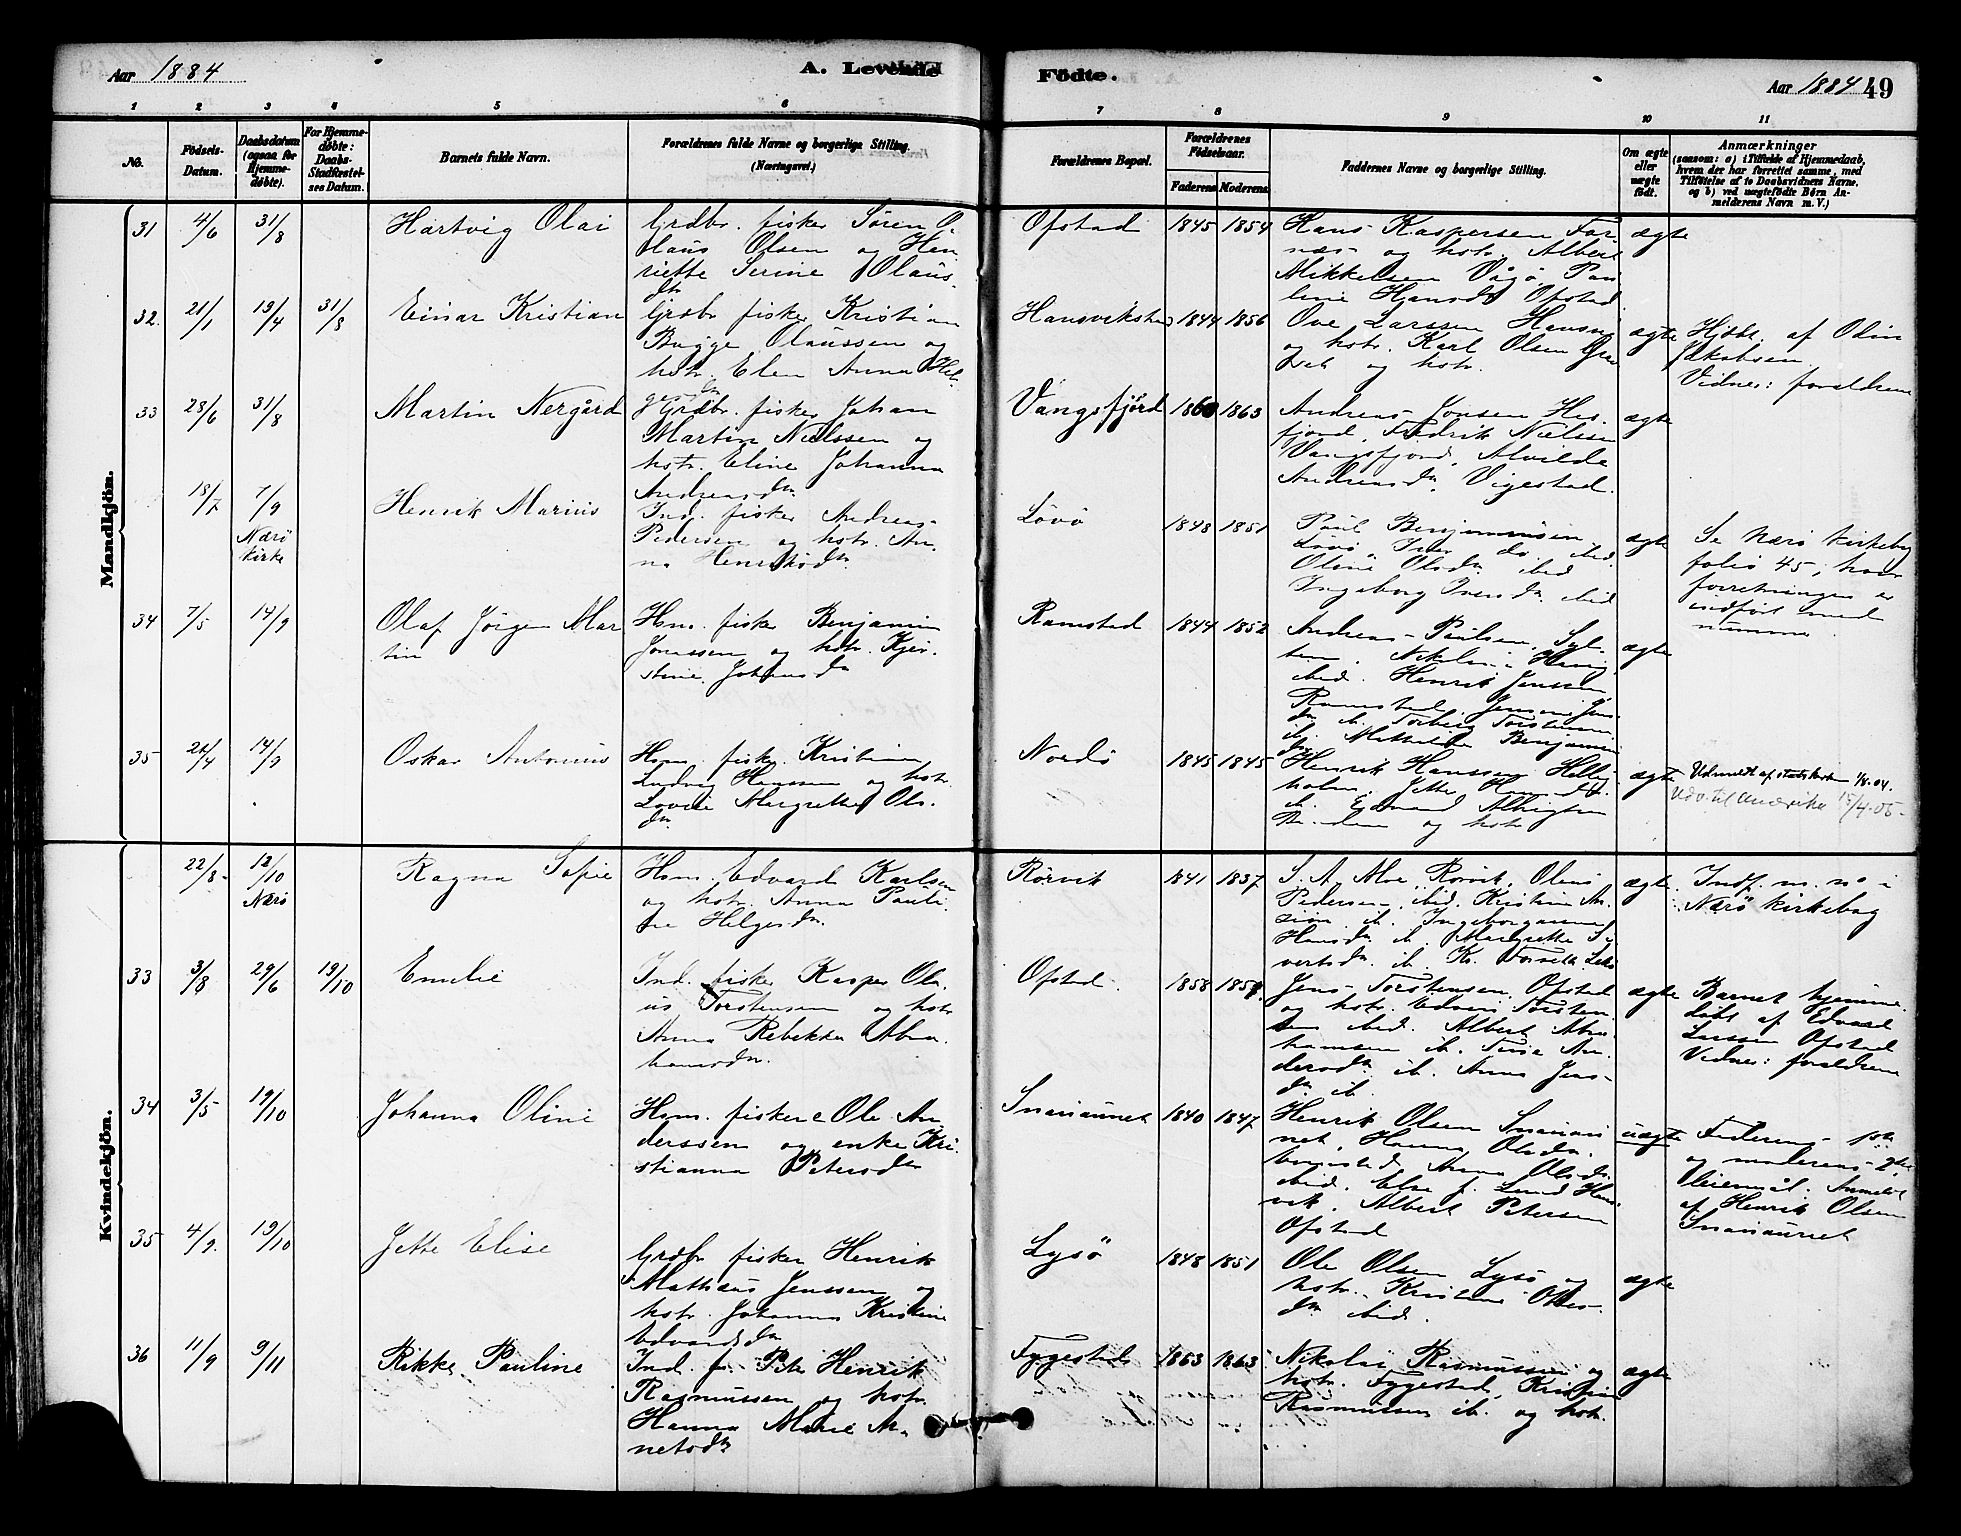 Aar 1884
A. Levende
Födte.
Aar 1884
49
1 2 3 4 5 6 7 8 9 10 11
No.
Födsels-
Datum.
Daabsdatum
(ogsaa for
Hjemme-
døbte).
For Hjemme-
døbte:
Daabs-
Stadfæstel-
ses Datum.
Barnets fulde Navn.
Forældrenes fulde Navne og borgerlige Stilling.
(Næringsvei.)
Forældrenes Bopæl.
Forældrenes
Födselsaar.
Faderens
Moderens
Faddernes Navne og borgerlige Stilling.
Om ægte
eller
uægte
født.
Anmærkninger
(saasom: a) i Tilfælde af Hjemmedaab,
hvem der har forrettet samme, med
Tilføielse af to Daabsvidners Navne,
og b) ved uægtefødte Børn An-
melderens Navn m. V.)
Mandkjön.
31 4/6 31/8
Hartvig Olai
Grdbr. fisker Søren O-
laus Olsen og Hen
riette Serine Olaus-
dtr
Ofstad
1845 1854
Hans Kaspersen For
næs og hstr. Albert
Mikkelsen Vågø, Pau
line Hansdtr Ofstad
ægte
32. 21/1 13/4 31/8
Einar Kristian
Grdbr fisker Kristian
Bugge Olaussen og
hstr. Elen Anna Hel-
gesdtr
1844 1856
Ove Larssen Hansvig
og hstr. Karl Olsen
og hstr.
ægte
Hjdbt. af Odin
Jakobsen
Vidner: forældrene
33 28/6 31/8
Martin Nergård
Grdbr. fisker Johan
Martin Nielssen og
hstr. Eline Johanna
Andreasdtr
Vangsfjord
1863
Andreas Jonsen
Fredrik Nielssen
Vangsfjord, Alvilde
Andreasdtr Vigestad.
ægte
18/7 7/9
Nærö
kirke
Henrik Marius
Ind. fisker Andreas
Pedersen og hstr. An-
na Henriksdtr.
Lövö
1848 1851
Paul Benjaminsen
Lövö, Iver do. ibid.
Oline Olsdtr ibid
Ingeborg Iversdtr. ibid
ægte
Se Nærö kirkebog
folio 45, hvor
forretningen er
indført med
nummer.
34 7/5 14/9
Olaf Jörgen Mar
tin
Hsm. fisker Benjamin
Jonassen og hstr. Kjer-
stine Johansdtr
Ramstad
1844 1852
Andreas Paulsen, Syl-
ten,
ibid. Henrik Jenssen
Ramstad, Jensine Jens-
dtr ib. Torberg Torstensen
ib. Mathilde Benjamin
ægte
35 14/9
Oskar Antonius
Hsm. fisker Kristian
Ludvig Hanssen og hstr
Lovise Margrethe Ols.
dtr
Nordö
1845 1845
Henrik Hanssen Helle-
holm, Jette
og hstr
ægte
Udmeldt af statskirken 1/8-04.
Udv. til Amerika 15/4-05-
Kvindekjön.
22/8- 12/10
Nærö
Ragna Sofie
Hsm. Edvard Karlsen
og hstr. Anna Pauli-
ne Helgesdtr.
Rörvik
1841 1837
S. A. Moe, Rörvik, Oline
Pedersen, ibid. Kristine
ib. Ingeborganna
Hansdtr ib. Margrethe Si-
vertsdtr. ib.
ægte
Indf. m. no i
Nærö kirkebog
33 3/8 29/6 19/10
Emelie
Ind. fisker Kasper Ola-
us Torstensen og hstr
Anna Rebekka Abra
hamsdtr.
Ofstad.
1858
Jens Torstensen, Ofstad
og hstr. Edvin Torsten-
sen ibid. Albert Abra
hamsen ib. Trine An-
dersdtr ib. Anna Jens-
dtr ib.
ægte
Barnet hjemme
döbt af Edvard
Larssen Ofstad
Vidner: forældrene
34 3/5 19/10
Johanna Oline
Hsm. fisker Ole An
derssen og enke Kri-
stianna Petersdtr
Snausaunet
1840 1847
Henrik Olsen
Hanna Olsdtr.
Anna Olsdtr
ibid. Else
Albert Petersen
Ofstad
uægte
Faderens 1ste
og moderens 2det
leiermål. Anmeldt
af Henrik Olsen
35 4/9. 19/10
Jette Elise
Grdbr fisker Henrik
Mathæus Jenssen og
hstr. Johanna Kristine
Edvardsdtr
Lysö
1848 1851
Ole Olsen Lysö og
hstr. Kristine Oles-
dtr ibid.
ægte
36 11/9 9/11
Rikke Pauline
Ind. fi. Peter Henrik
Rasmussen og hstr.
Hanna Marie A-
netsdtr
Fyggestad
1863 1863
Nikolai Rasmussen og
hstr. Fyggestad, Kristian
Rasmussen ib. og hstr.
ægte